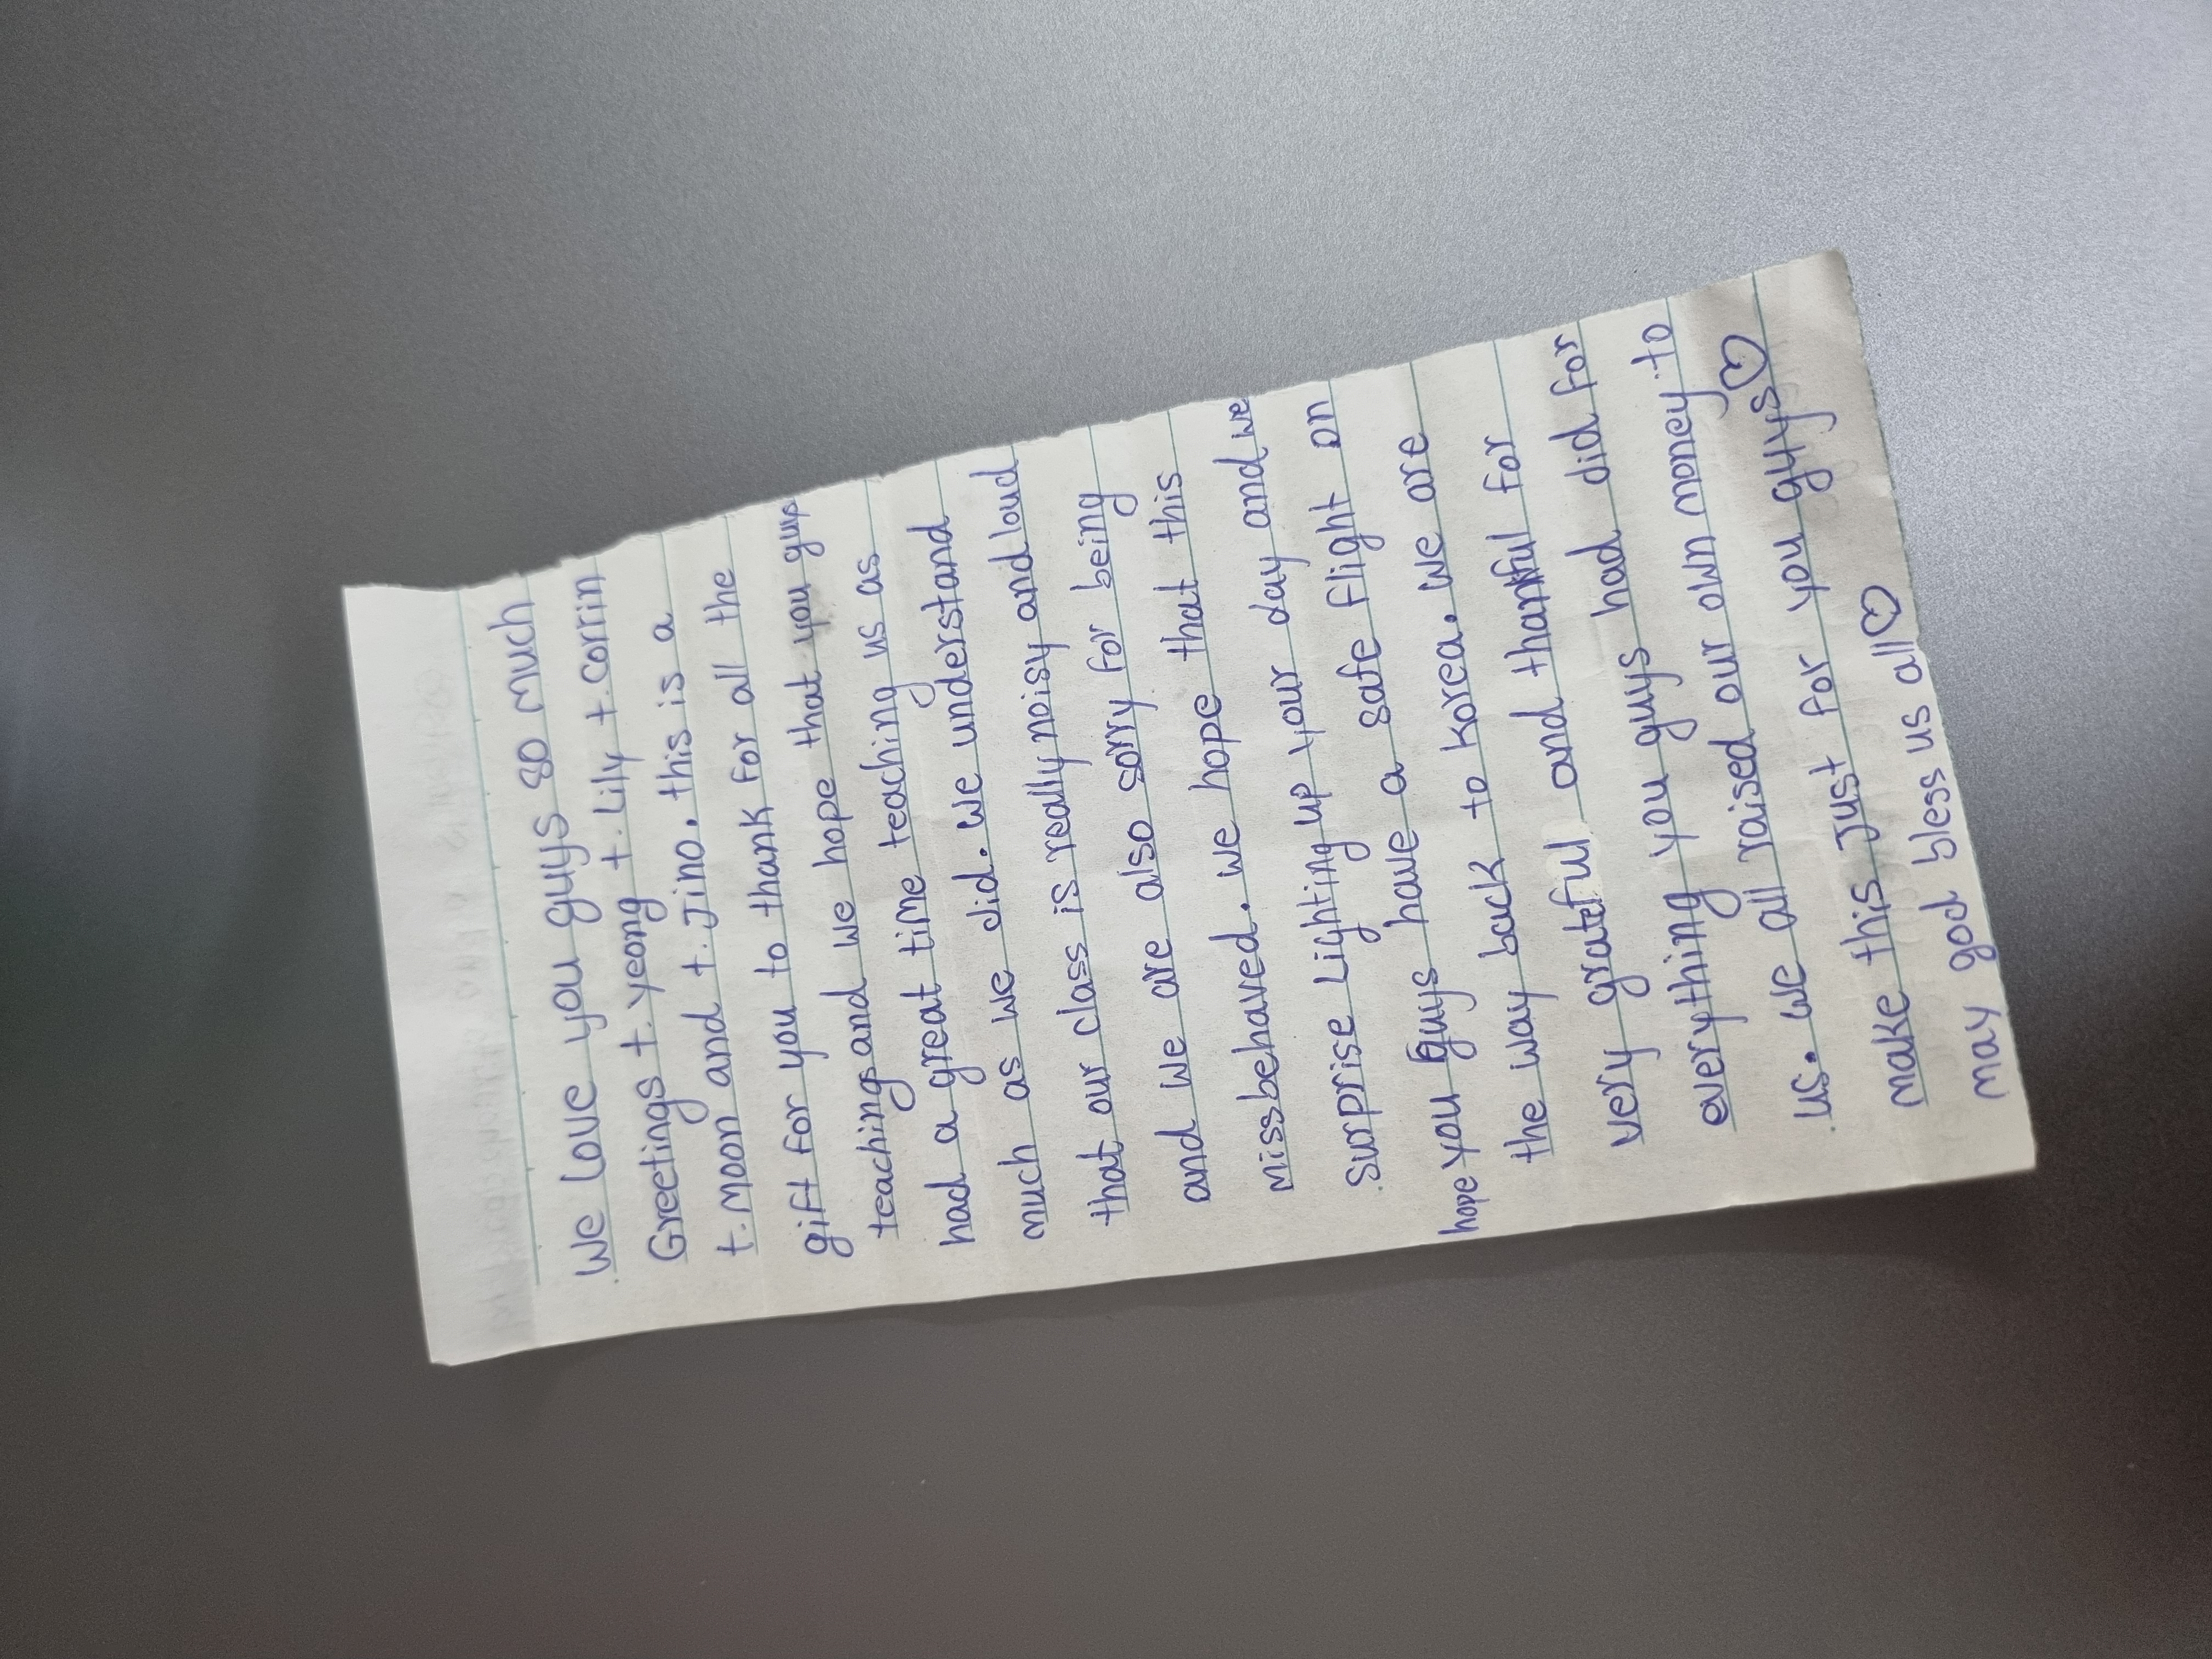 We love you guys so much
Greetings t. yeong t. Lily t. corrin
t. moon and t. Jino. this is a
gift for you to thank for all the
teachings and we hope that you guys
had a great time teaching us as
much as we did. we understand
that our class is really noisy and loud
and we are also sorry for being
missbehaved. we hope that this
surprise Lighting up your day and we
hope you guys have a safe flight on
the way back to korea. we are
very grateful and thankful for
everything you guys had did for
us. we all raised our own money to
make this just for you guys♡♡
may god bless us all♡